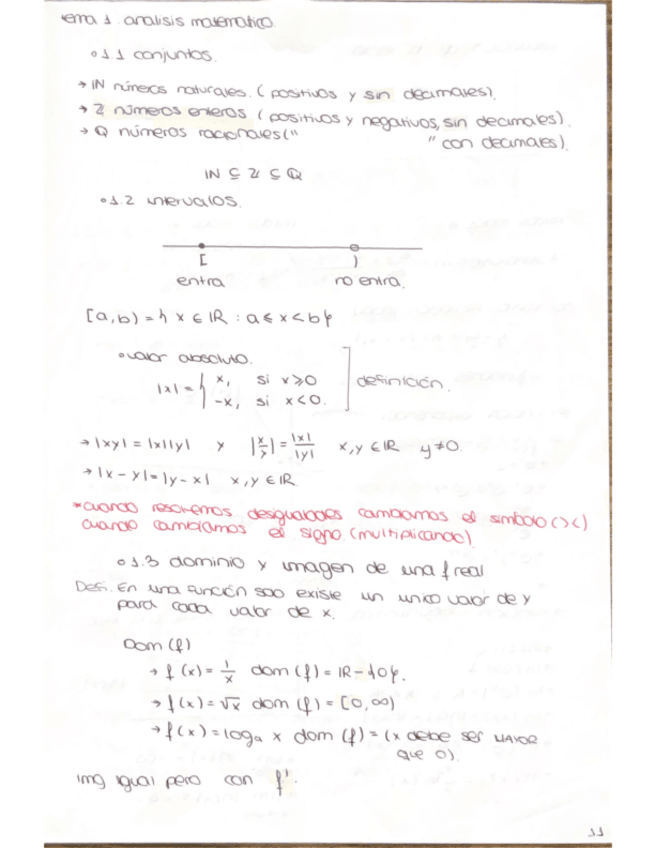 tema 1. analisis matematico.
◦1.1 conjuntos.
→ IN números naturales. (positivos y sin decimales).
→ Z números enteros (positivos y negativos, sin decimales).
→ Q números racionales (" " con decimales).
IN ⊆ Z ⊆ Q
◦1.2 intervalos.
[ )
entra no entra.
[a,b) = { x ∈ IR : a ≤ x < b }
◦valor absoluto.
|x| = { x, si x ≥ 0
-x, si x < 0.
definición.
→ |xy| = |x||y| y |x/y| = |x|/|y| x,y ∈ IR y ≠ 0.
→ |x - y| = |y - x| x,y ∈ IR
*cuando resolvemos desigualdades cambiamos el simbolo (><)
cuando cambiamos el signo (multiplicando)
◦1.3 dominio y imagen de una f real
Defi. En una función solo existe un unico valor de y
para cada valor de x.
Dom (f)
→ f(x) = 1/x dom (f) = IR - {0}.
→ f(x) = √x dom (f) = [0, ∞)
→ f(x) = logₐ x dom (f) = (x debe ser mayor
que 0).
img igual pero con f'.
11